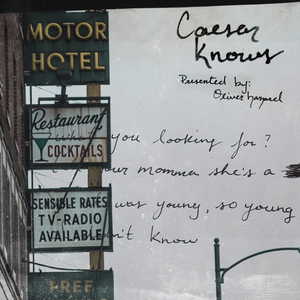 MOTOR
HOTEL
Restaurant
COCKTAILS
SENSIBLE RATES
TV-RADIO
AVAILABLE
FREE
Caesar
Knows
Presented by:
you looking for?
your momma she's a
was young, so young
know